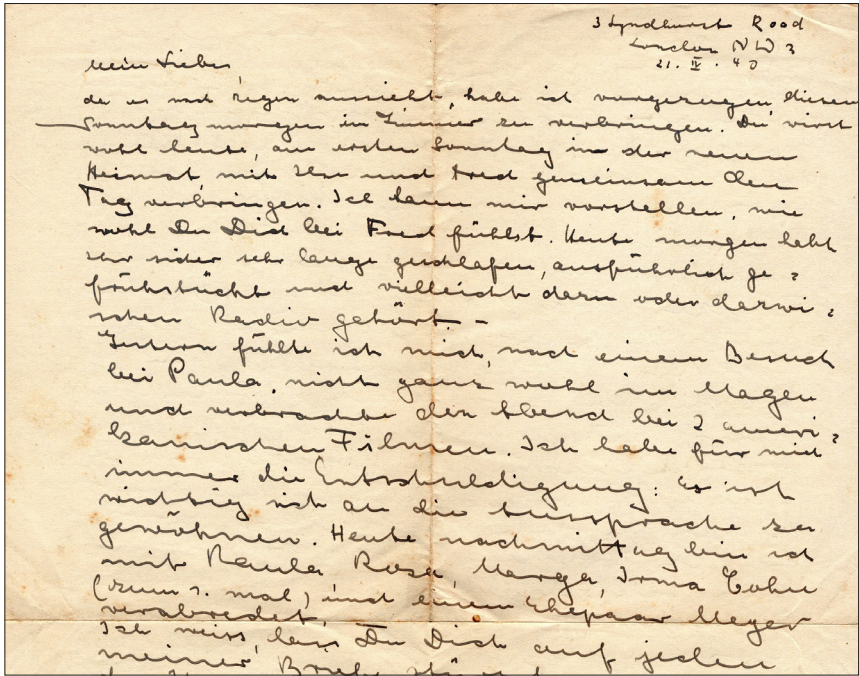 3 Lyndhurst Road
London NW 3
21. IV. 40
Mein Lieber,
da es nach regen aussieht, habe ich vorgezogen diesen
Sonntag morgen im Zimmer zu verbringen. Du wirst
wohl heute, am ersten Sonntag in der neuen
Heimat mit Ilse und Fred gemeinsam den
Tag verbringen. Ich kann mir vorstellen, wie
wohl Du Dich bei Fred fühlst. Heute morgen habt
Ihr sicher sehr lange geschlafen, ausführlich ge=
frühstückt und vielleicht dann oder dazwi=
schen Radio gehört. –
Gestern fühlte ich mich, nach einem Besuch
bei Paula, nicht ganz wohl im Magen
und verbrachte den Abend bei 2 ameri=
kanischen Filmen. Ich habe für mich
immer die Entschuldigung: Es ist
wichtig sich an die Aussprache zu
gewöhnen. Heute nachmittag bin ich
mit Paula, Rosa, Marga, Irma Cohn
(zum 1. mal) und einem Ehepaar Meyer
verabredet.
Ich weiss, dass Du Dich auf jeden
meiner Briefe